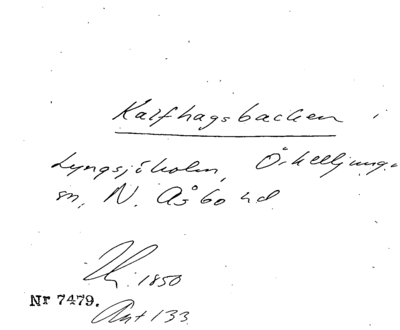 Kalfhagsbacken
Lyngsjöholm, Örkelljunga
sn, N. Åsbo hd
1850
Nr 7479.
Ant 133